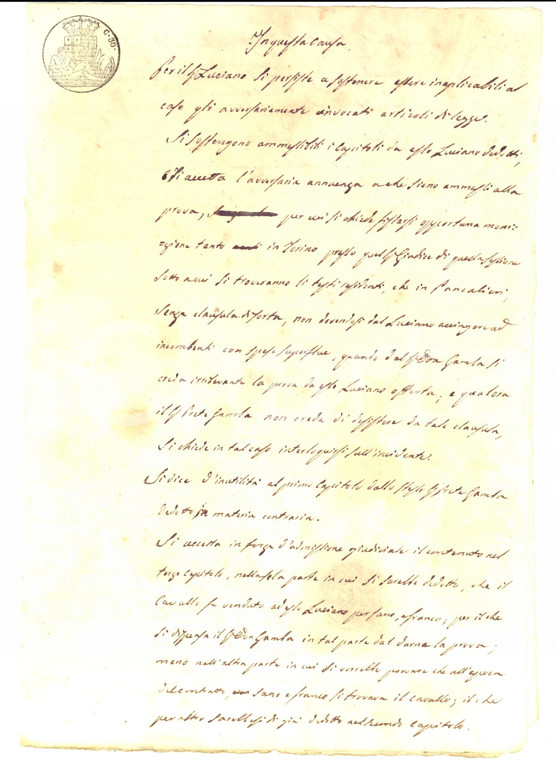 C. 30.
In questa Causa.
Per il Sr Luciano si persiste a sostenere essere inapplicabili al
caso gli avversariamente invocati articoli di legge.
Si sostengono ammessibili i Capitoli da esso Luciano dedotti,
e si accetta l'avversaria annuenza a che sieno ammessi alla
prova, per cui si chiede fissarsi opportuna moni-
zione tanto in Torino presso quel Sr Giudice di quella Sezione
sotto a cui si troveranno li testi residenti, che in Pancalieri,
senza clausula di sorta, non dovendosi dal Luciano accingere ad
incombenti con spese superflue, quando dal Sr Don Gamba si
creda irrilevante la prova da esso Luciano offerta; e qualora
il Sr Prete Gamba non creda di desistere da tale clausula,
si chiede in tal caso interloquirsi sull'incidente.
Si dice d'inutilità al primo Capitolo dallo stesso Sr Prete Gamba
dedotto in materia contraria.
Si accetta in forza d'admissione giudiciale il contenuto nel
terzo Capitolo, nella sola parte in cui si sarebbe dedotto, che il
Cavallo fu venduto ad esso Luciano per sano, e franco; per il che
si dispensa il Sr Don Gamba in tal parte dal darne la prova;
meno nell'altra parte in cui si vorrebbe provare che all'epoca
del contratto, sano e franco si trovava il Cavallo; il che
per altro sarebbesi di già dedotto nel secondo Capitolo.